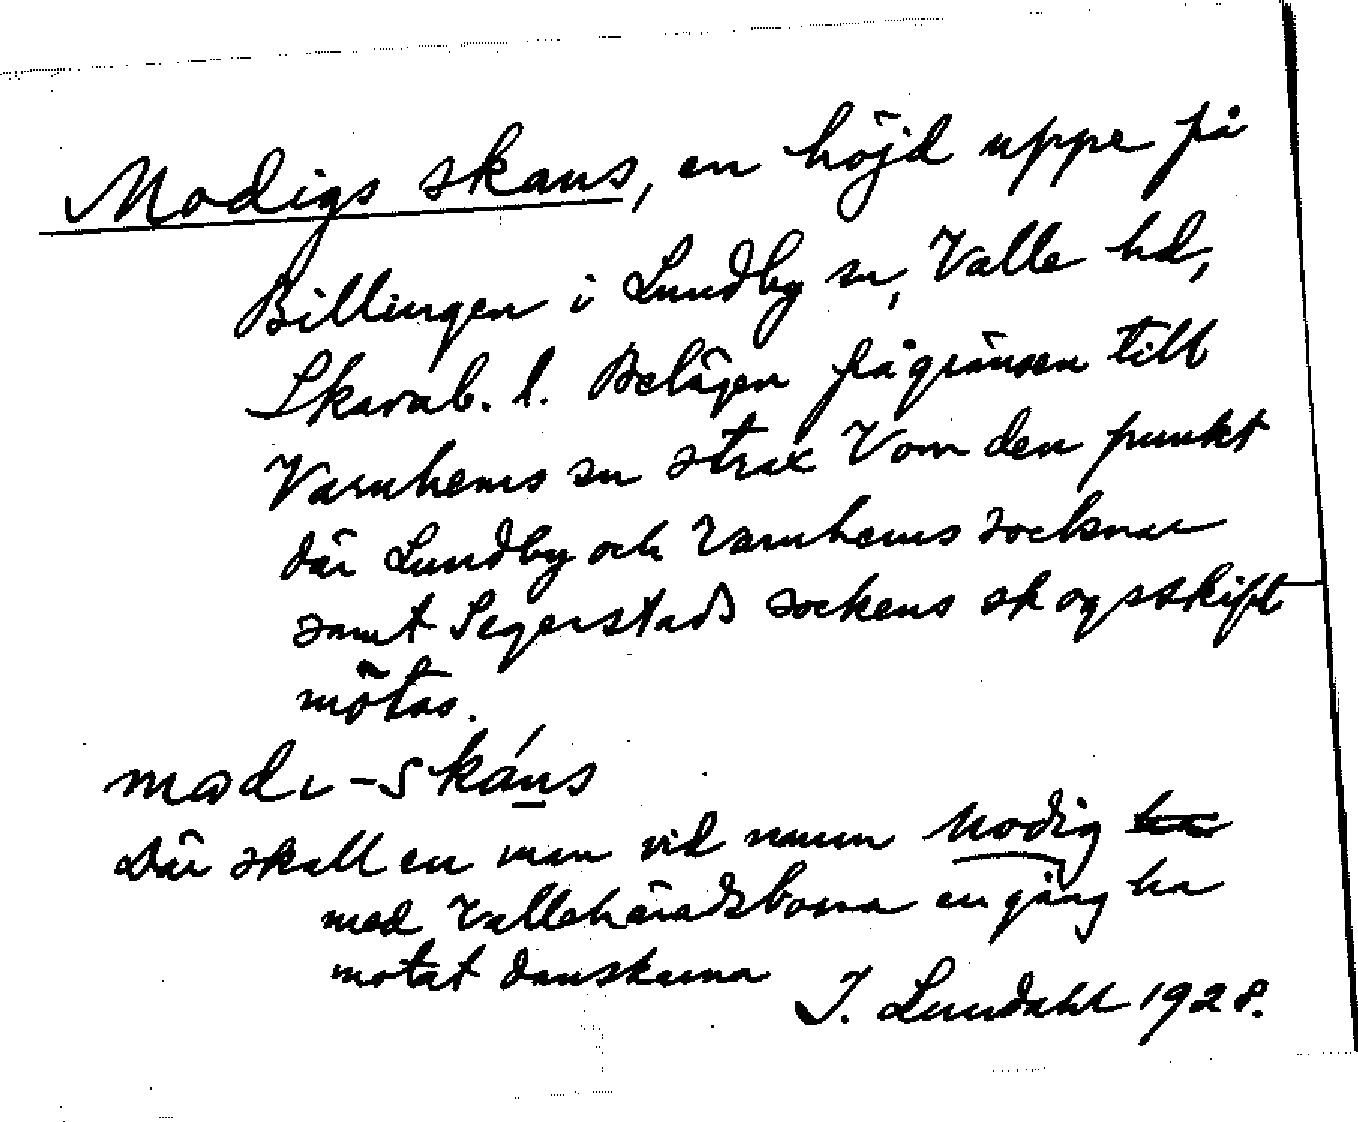 Modigs skans, en höjd uppe på
Billingen i Lundby sn, Valle hd,
Skarab. l. Belägen på gränsen till
Varnhems sn strax V om den punkt
där Lundby och Varnhems socknar
samt Segerstads sockens skogsskift
mötas.
madɩ-skáns
Där skall en man vid namn Modig ha
med Valleháradsborna en gång ha
motat danskarna
I. Lundahl 1928.